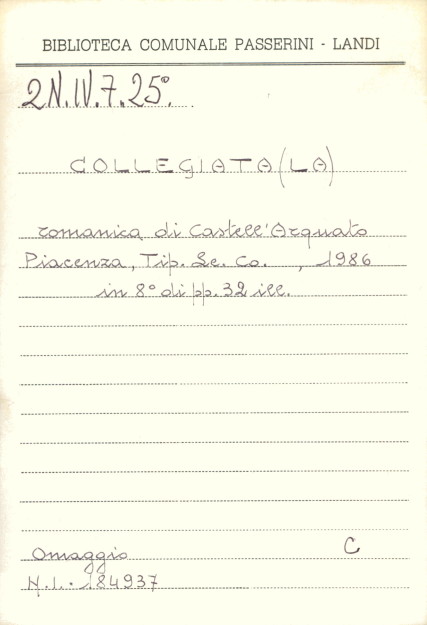 BIBLIOTECA COMUNALE PASSERINI - LANDI
2N.IV.7.25°
COLLEGIATA (LA)
romanica di Castell'Arquato
Piacenza, Tip. Le. Co. , 1986
in 8° di pp. 32 ill.
Omaggio C
N.I. 184937